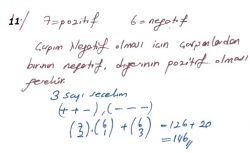 11) 7=pozitif 6=negatif
Çarpım Negatif olması için çarpanlardan
birinin negatif, diğerinin pozitif olması
gerekir.
3 sayı seçelim
(++-), (---)
(7 2).(6 1)+(6 3)=126+20
=146